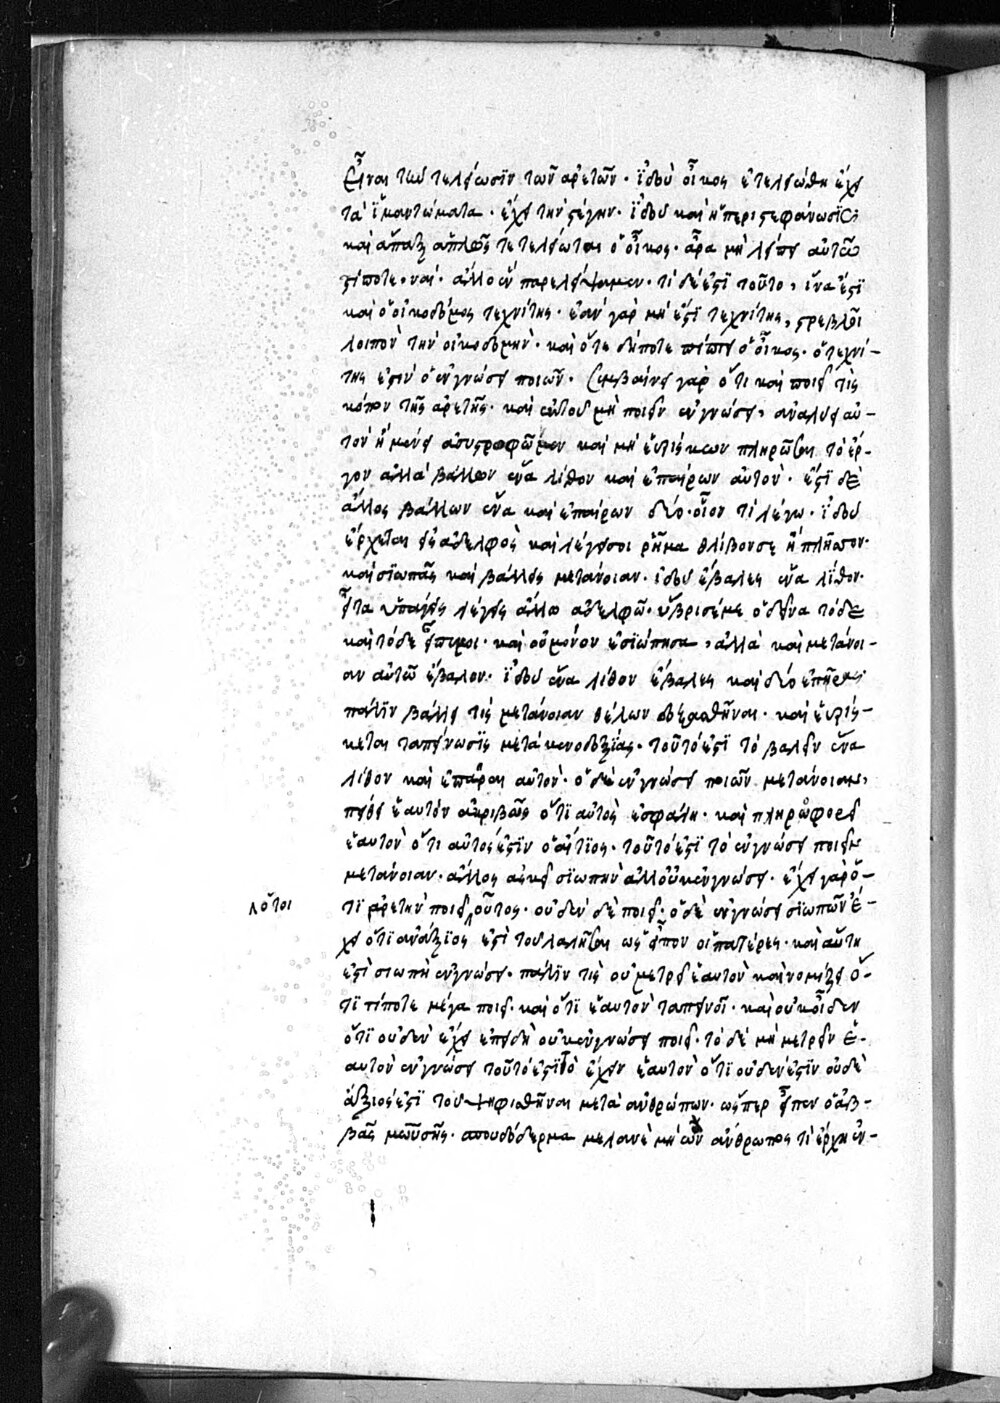 εἶναι τὴν τελείωσϊν τῶν ἀρετῶν · ἰ̈δοὺ οἶκος ἐτελειώθη ἔχει
τὰ ϊ̔μαντώματα · ἔχει τὴν στέγην · ϊ̓δοὺ καὶ ἡ περιστεφάνωσϊς
καὶ ἅπαξ ἁπλῶς τετελείωται ὁ οἶκος · ἆρα μὴ λείπει αὐτῶ
τίποτε · ναί · ἄλλο ἓν παρελείψαμεν · τί δέ ἐστϊ τοῦτο, ἵνα ἐστϊ
καὶ ὁ οἰκοδόμος τεχνίτης · ἐὰν γὰρ μὴ ἐστϊ τεχνίτης, στρεβλοῖ
λοιπὸν τὴν οἰκοδομὴν · καὶ ὅτε δήποτε πίπτει ὁ οἶκος · ὁ τεχνί-
της ἐστὶν ὁ ἐν γνώσει ποιῶν · συμβαίνει γὰρ ὅτι καὶ ποιεῖ τὶς
κόπον τῆς ἀρετῆς · καὶ ἐκ τοῦ μὴ ποιεῖν ἐν γνώσει, ἀναλύει αὐ-
τὸν ἢ μένει ἀσυστροφῶμεν καὶ μὴ εὑρίσκων πληρῶσαι τὸ ἔρ-
γον ἀλλὰ βάλλων ἕνα λίθον καὶ ἐπαίρων αὐτὸν · ἔστϊ δὲ
ἄλλος βάλλων ἕνα καὶ ἐπαίρων δύο · οἷον τί λέγω · ἰ̈δοὺ
ἔρχεται εἷς ἀδελφὸς καὶ λέγει σοι ῥῆμα θλίβον σε ἢ πλῆσσον ·
καὶ σϊωπᾶς καὶ βάλλεις μετάνοιαν · ἰδοὺ ἔβαλες ἕνα λίθον ·
εἶτα ὑπάγεις λέγεις ἄλλω ἀδελφῶ · ὕβρισέ με ὁ δεῖνα τόδε
καὶ τόδε εἶπε μοι · καὶ οὐ μόνον ἐσϊώπησα, ἀλλὰ καὶ μετάνοι-
αν αὐτῶ ἔβαλον · ϊ̓δοὺ ἕνα λίθον ἔβαλες καὶ δύο ἐπῆρες
πάλϊν βάλλει τὶς μετάνοιαν θέλων δοξασθῆναι · καὶ εὑρίς-
κεται ταπείνωσϊς μετὰ κενοδοξΐας · τοῦτό ἐστϊ τὸ βαλεῖν ἕνα
λίθον καὶ ἐπᾶραι αὐτὸν · ὁ δὲ ἐν γνώσει ποιῶν μετάνοιαν,
πείθει ἑαυτὸν ἀκριβῶς ὅτϊ αὐτὸς ἐσφάλη · καὶ πληροφορεῖ
ἑαυτὸν ὅτι αὐτός ἐστϊν ὁ αἴτϊος · τοῦτό ἐστϊ τὸ ἐν γνώσει ποιεῖν
μετάνοιαν · ἄλλος ἀσκεῖ σϊωπὴν ἀλλ' οὐκ ἐν γνώσει · ἔχει γὰρ ὅ-
τϊ ἀρετὴν ποιεῖ οὗτος · οὐδὲν δὲ ποιεῖ · ὁ δὲ ἐν γνώσει σϊωπῶν ἔ-
χει ὅτϊ ἀνάξϊός ἐστὶ τοῦ λαλῆσαι ὡς εἶπον οἱ πατέρες · καὶ αὕτη
ἐστὶ σιωπὴ ἐν γνώσει · πάλϊν τὶς οὐ μετρεῖ ἑαυτὸν καὶ νομίζει ὅ-
τϊ τίποτε μέγα ποιεῖ · καὶ ὅτϊ ἑαυτὸν ταπεινοῖ · καὶ οὐκ οἶδεν
ὅτϊ οὐδὲν ἔχει ἐπειδὴ οὐκ ἐν γνώσει ποιεῖ · τὸ δὲ μὴ μετρεῖν ἑ-
αυτὸν ἐν γνώσει τοῦτό ἐστϊ τὸ ἔχειν ἑαυτὸν ὅτϊ οὐδέν ἐστϊν οὐδὲ
ἄξιός ἐστϊ τοῦ ψηφισθῆναι μετὰ ἀνθρώπων · ὥσπερ εἶπεν ὁ ἀβ-
βᾶς μωϋσῆς · σποδόδερμα μελανὲ μὴ ὢν ἄνθρωπος τί ἔρχῃ ἐν-
λ ὅτοι